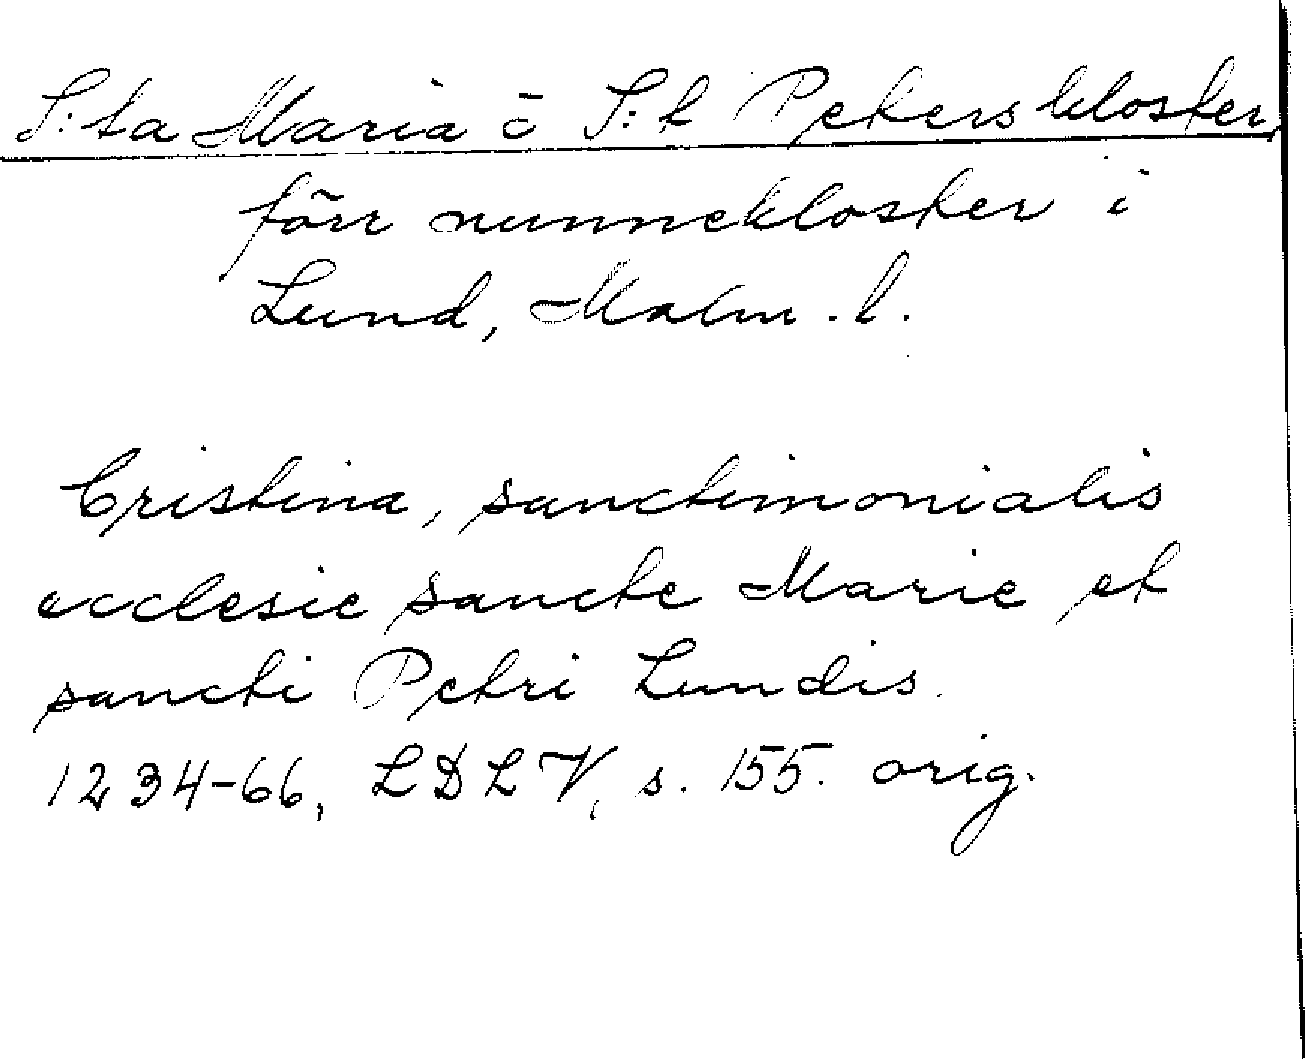 S:ta Maria o S:t Peters kloster,
förr nunnekloster i
Lund, Malm. l.
Cristina, sanctimonialis
ecclesie sancte Marie et
sancti Petri Lundis.
1234-66, LDLV, s. 155. orig.